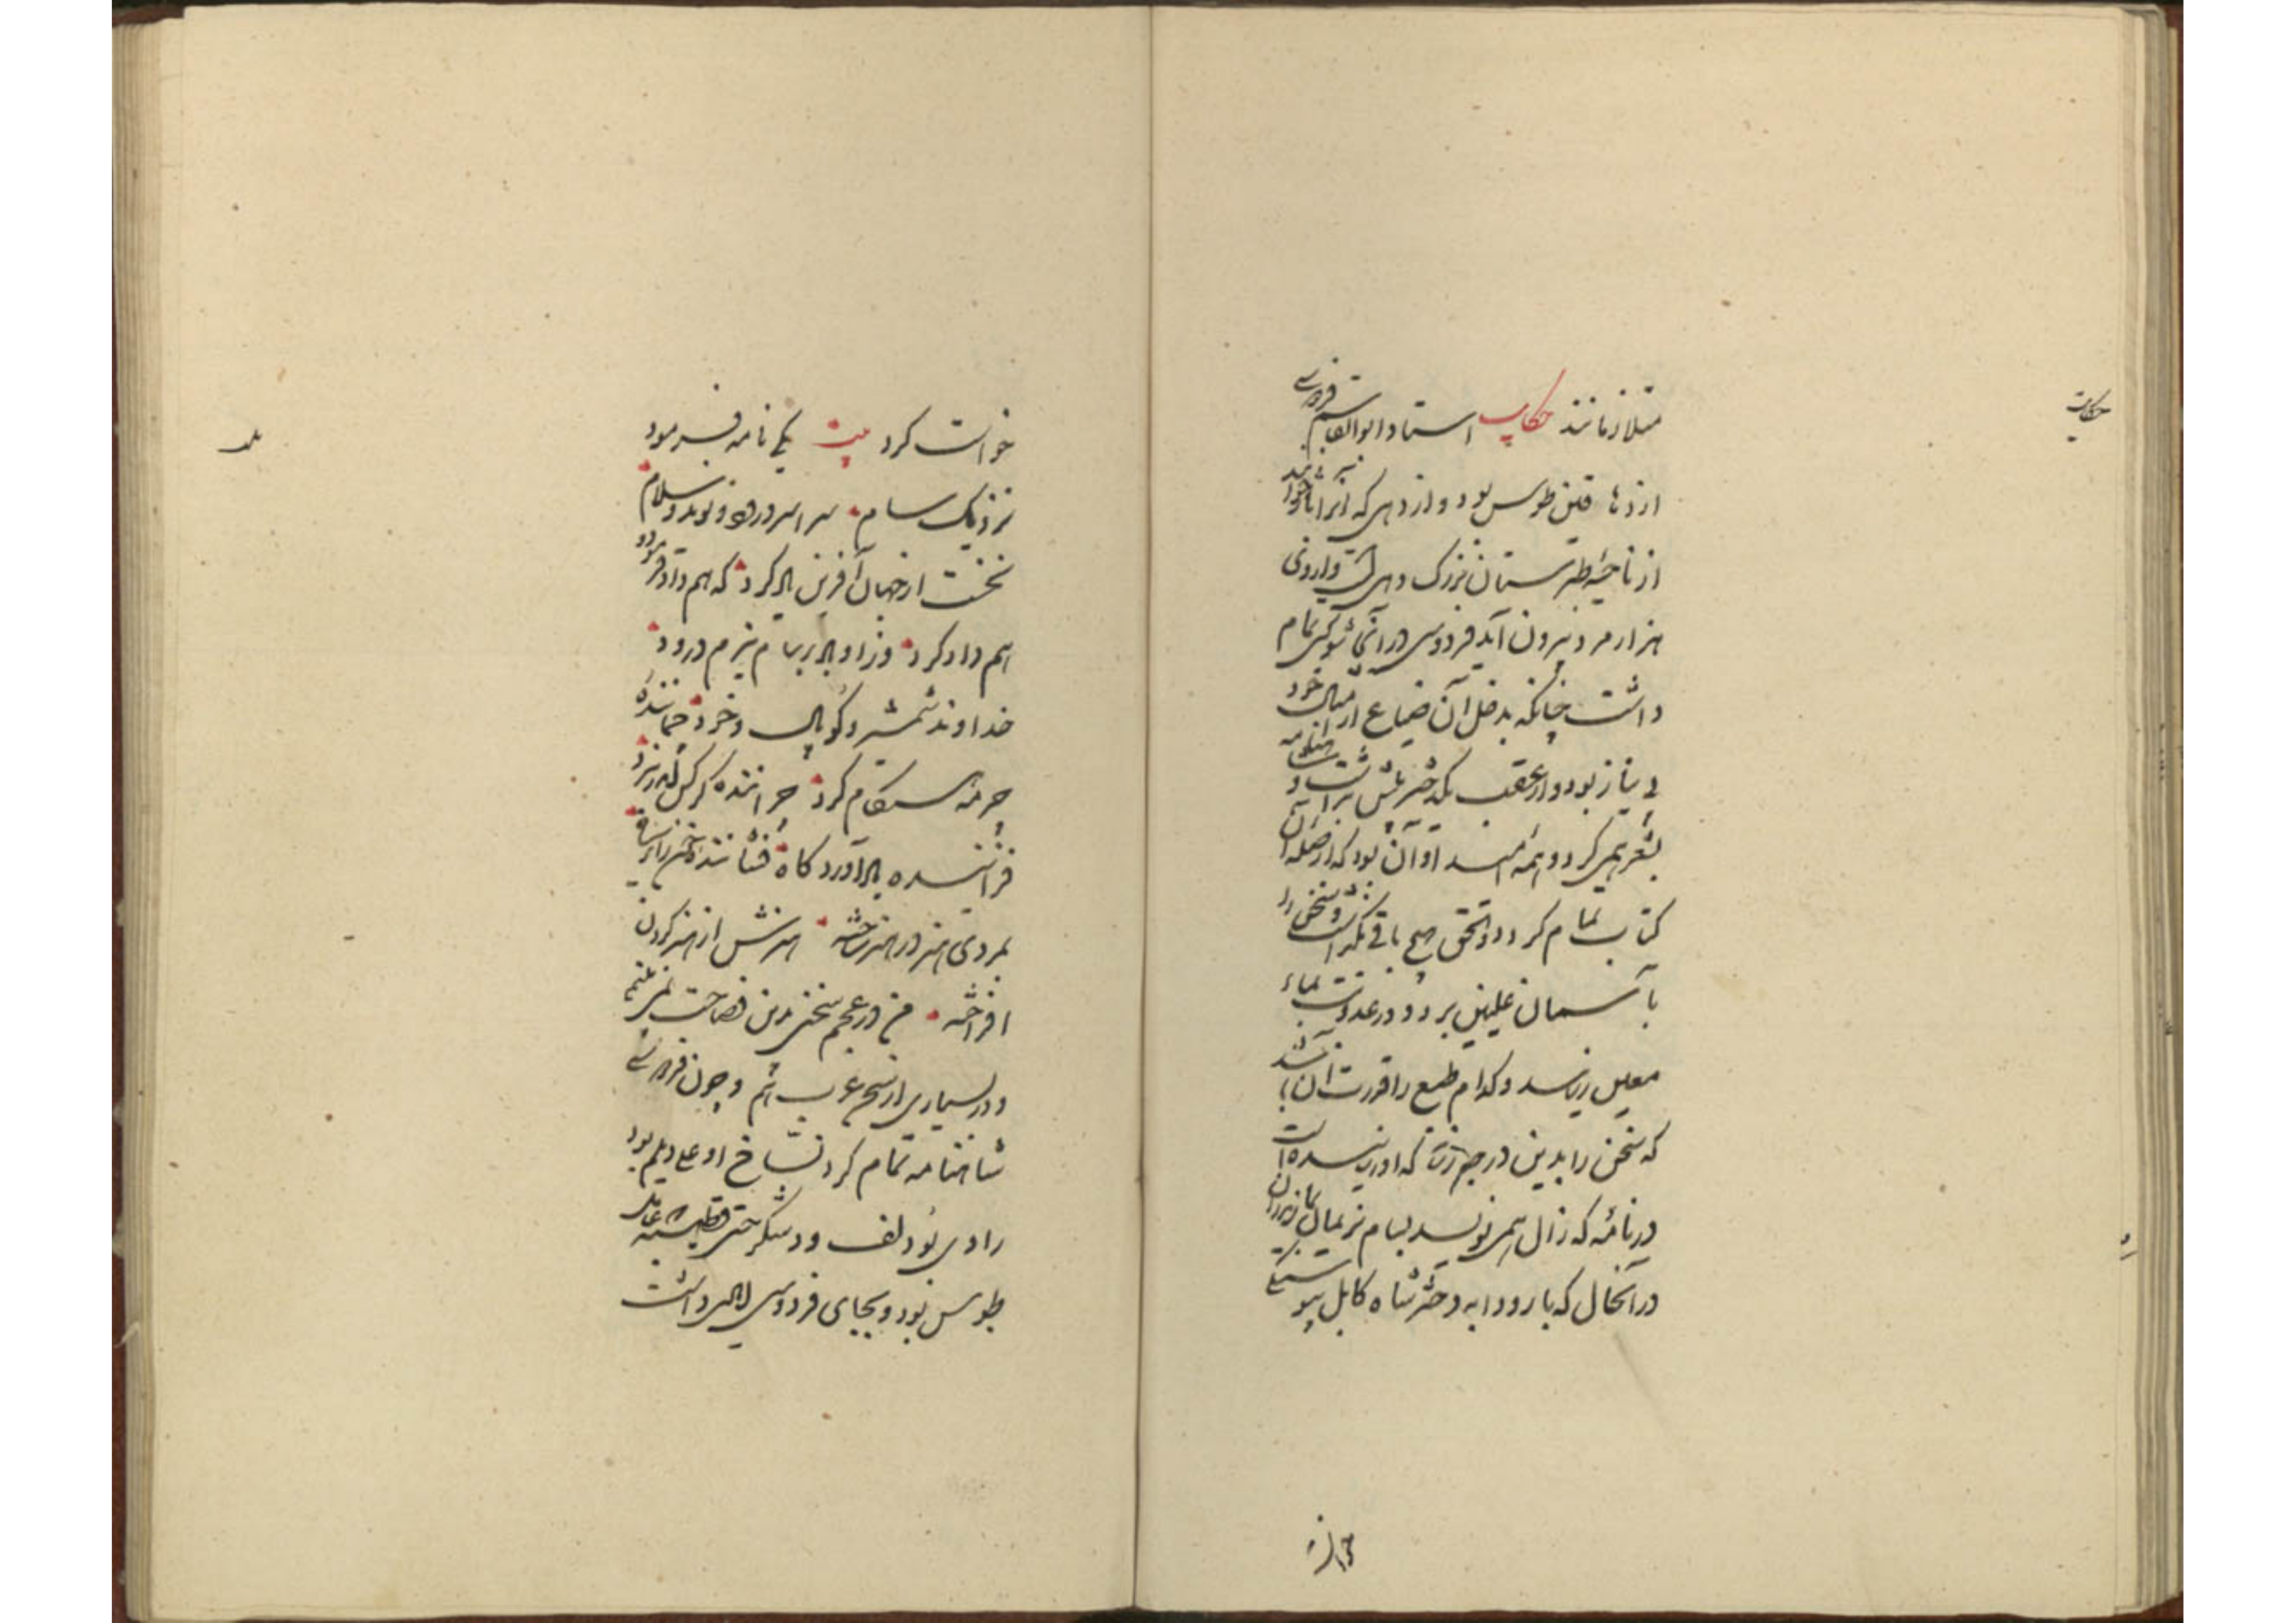 حکایت
متلازمانند حکایت استاد ابوالقاسم فردوسی
از دهاقین طوس بود و از دهی که آنرا باژ خوانند
از ناحیهٔ طبرستان بزرگ دهی است و از وی
هزار مرد بیرون آید فردوسی در آن دیه شوکتی تمام
داشت چنانکه بدخل آن ضیاع از امثال خود
بی نیاز بود و از عقب یکدختر بیش نداشت و شاهنامه
بشعر همی کرد و همه امید او آن بود که از صله آن
کتاب تمام کرد و الحق هیچ باقی نگذاشت و سخن را
بآسمان علیین برد و در عذوبت بماء
معین رسانید و کدام طبع را قدرت آن باشد
که سخن را بدین درجه رساند که او رسانیده است
در نامهٔ که زال همی نویسد بسام نریمان بمازندران
در آنحال که با رودابه دختر شاه کابل پیوستگی
خواست کرد بیت یکی نامه فرمود
نزدیک سام سراسر درود و نوید و سلام
نخست از جهان آفرین یاد کرد که هم داد فرمود و
هم داد کرد وزو باد بر سام نیرم درود
خداوند شمشیر و کوپال و خود چمانندهٔ
چرمه هنگام گرد چرانندهٔ کرکس اندر نبرد
فزایندهٔ باد آوردگاه فشانندهٔ خون ز ابر سیاه
بمردی هنر در هنر ساخته هنرش از هنر گردن
افراخته من در عجم سخنی بدین فصاحت نمی بینم
و در بسیاری از سخن عرب هم و چون فردوسی
شاهنامه تمام کرد نسّاخ او علی دیلم بود
راوی بودلف و وشکر حیی قتیبه که عامل
طوس بود و بجای فردوسی ایادی داشت